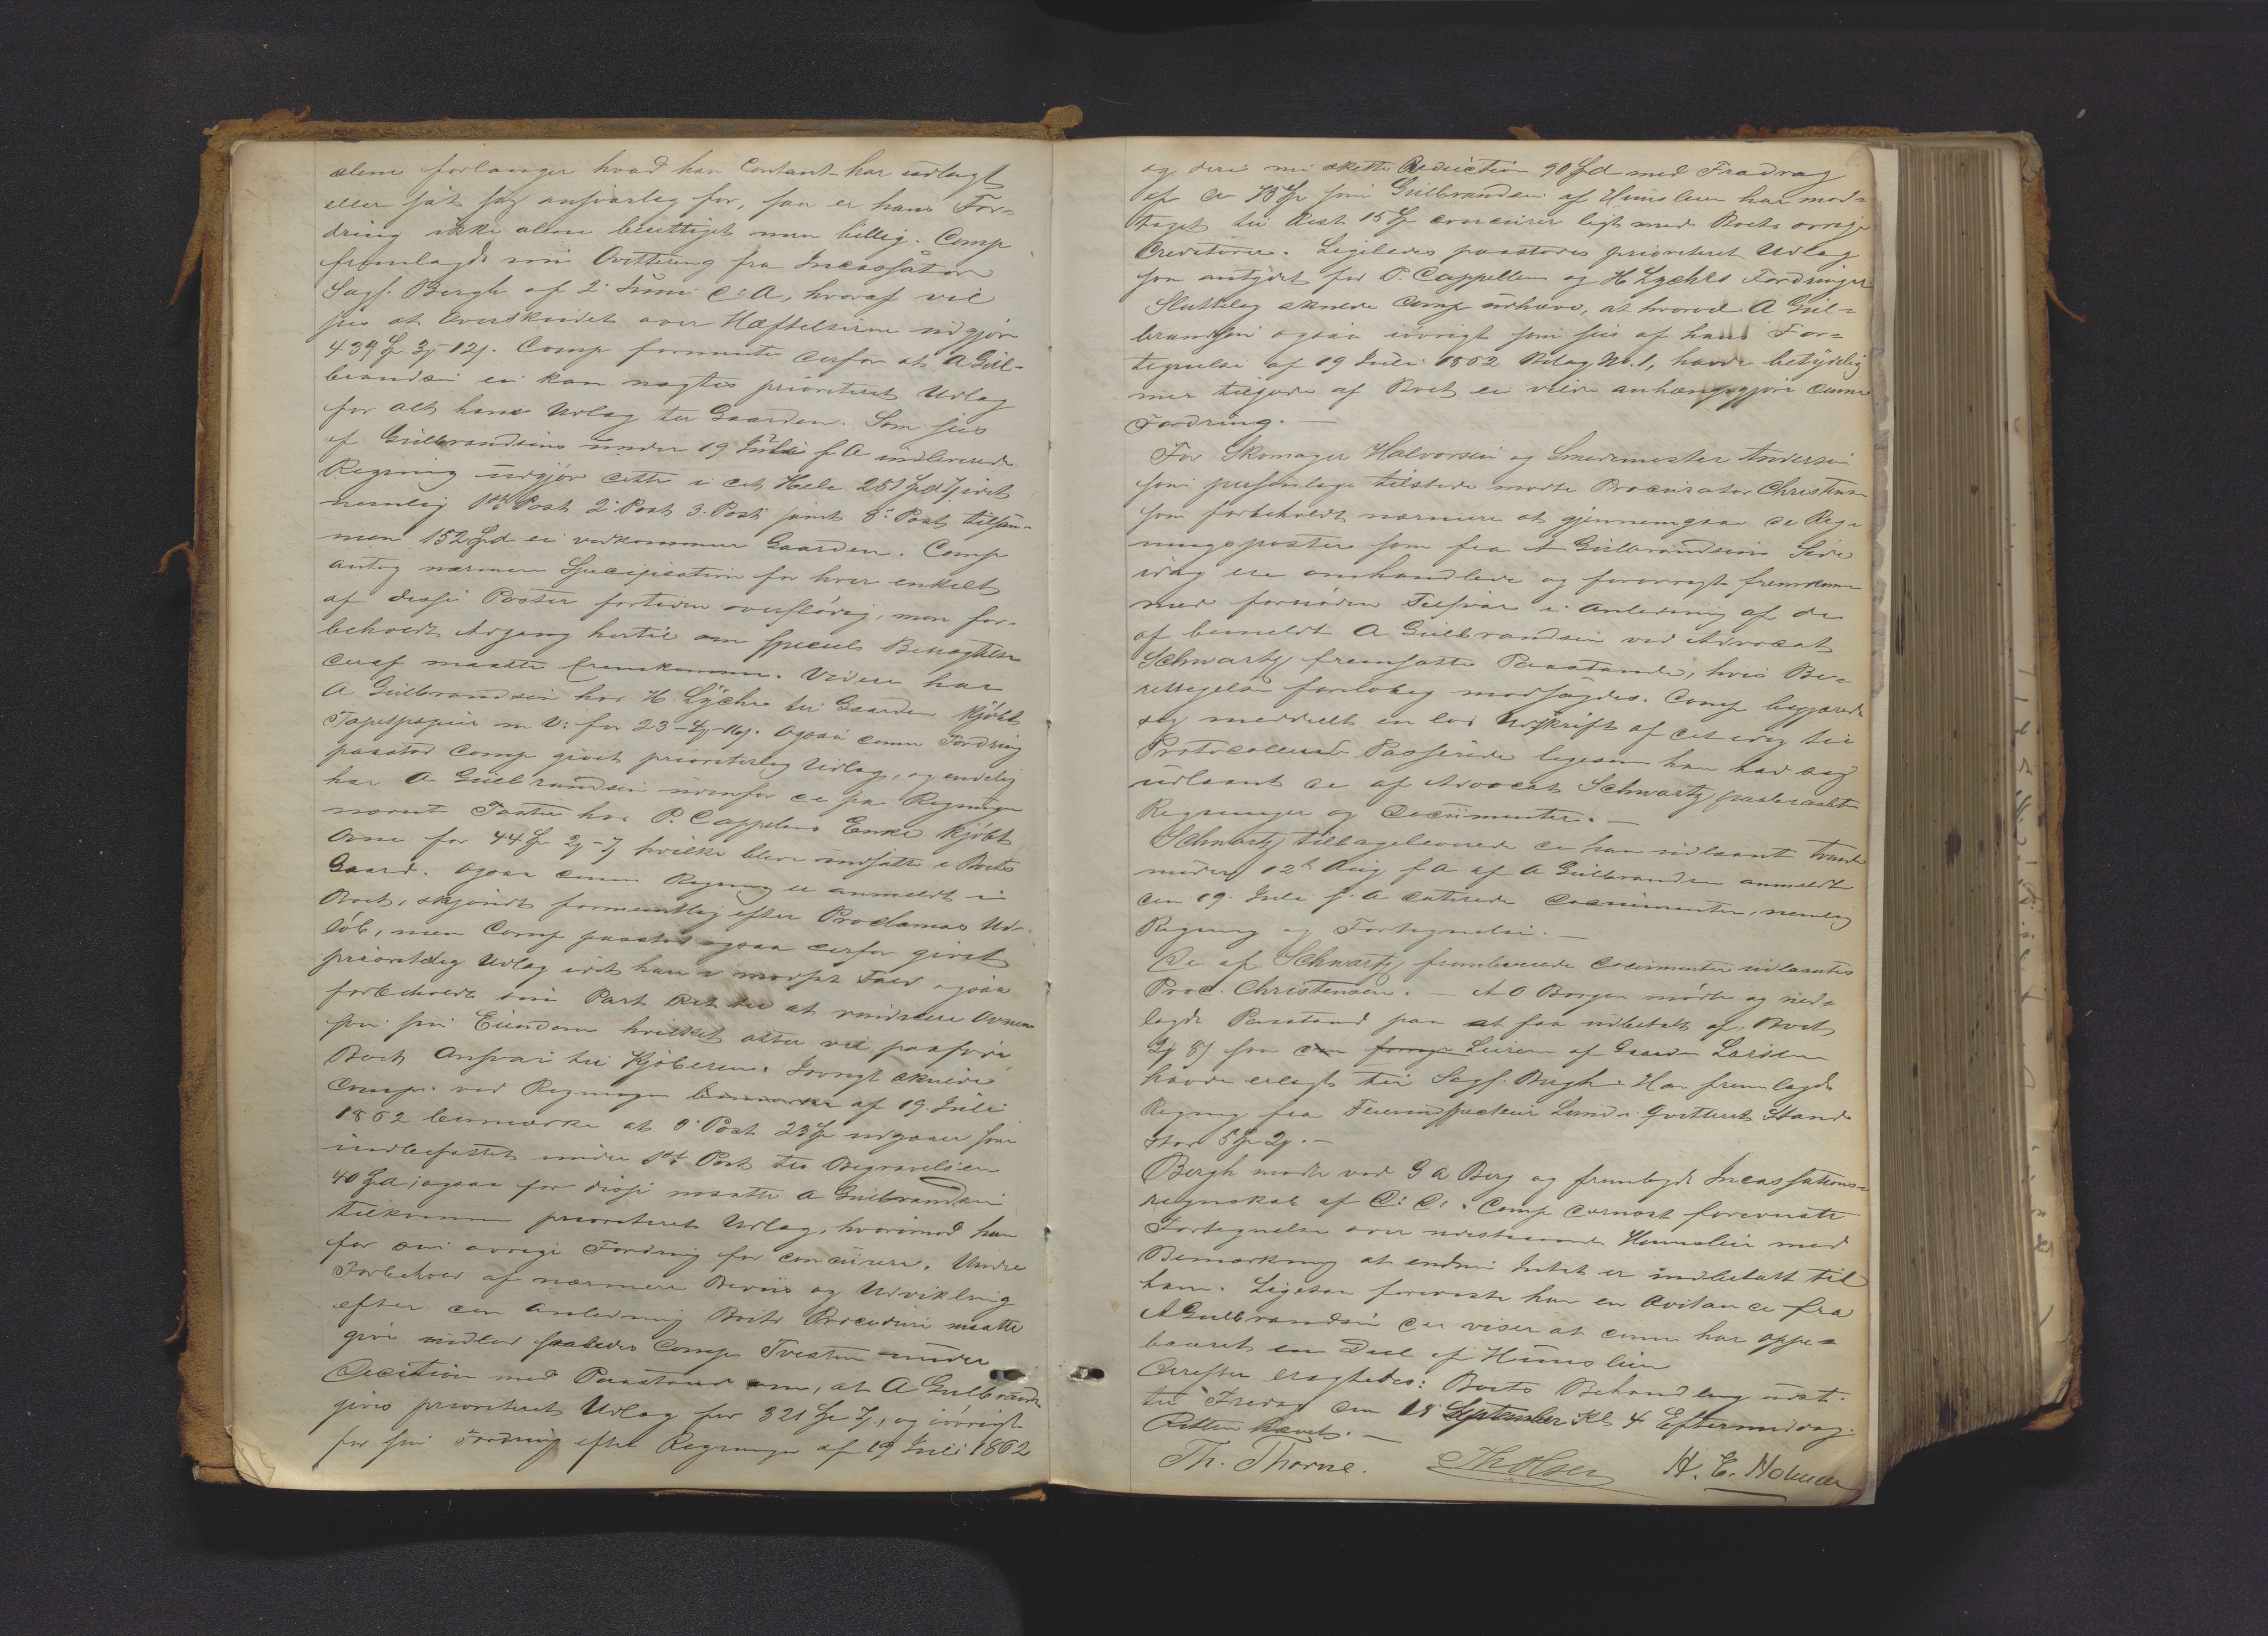 alene forlanger hvad han Contant har udlagt
eller sat sig ansvarlig for, saa er hans For-
dring ikke alene berettiget men billig. Comp
fremlagde sin Qvittering fra Incassator
Sagf. Bergh af 2. Juni d: A, hvoraf vil
sees at Overskudet over Hæftelserne udgjør
439 Spd 3 12 . Comp formente derfor at A Gul-
brandsen ei kan nægtes prioriteret Udlag
for alt hans Udlag til Gaarden. Som sees
af Gulbrandsens under 19 Juli f A indleverede
Regning udgjør dette i det Hele 281 Spd idet
nemlig 1ste Post 2 Post 3. Post samt 8. Post tilsam-
men 152 Spd ei vedkommer Gaarden. Comp
antog nærmere Specification for hver enkelt
af disse Poster fortiden overflødig, men for-
beholdt Adgang hertil om speciel Benægtelse
deraf maatte fremkomme. Videre har
A Gulbrandsen hos H. Lyche til Gaarden kjøbt
Tapetpapir m V: for 23 - 4 - 16 . Ogsaa denne Fordring
paastod Comp givet prioriterlig Udlag, og endelig
har A Gulbrandsen udenfor de paa Regningen
nævnte Poster hos P. Cappelens Enke kjøbt
Ovne for 44 Spd 2 - hvilke bleve indsatte i Boets
Gaard. Ogsaa denne Regning er anmeldt i
Boet, skjøndt formentlig efter Proclamas Ud-
løb, men Comp paastod ogsaa derfor givet
prioritetlig Udlag idet han i modsat Fald ogsaa
forbeholdt sin Part Ret til at vindicere Ovnene
som sin Eiendom hvilket atter vil paaføre
Boet Ansvar til Kjøberen. Iøvrigt skulde
Comp. ved Regningen bemærke af 19. Juli
1862 bemærke at 9. Post 23 Spd udgaaer som
indbefattet under 1ste Post til Begravelsen
40 Spd; ogsaa for disse maatte A Gulbrandsen
tilkomme prioriteret Udlag, hvorimod han
for sin øvrige Fordring faar concurrere. Under
Forbehold af nærmere Beviis og Udvikling
efter den Anledning Boets Procedure maatte
give indlod saaledes Comp Tvisten under
Decision med Paastand om, at A Gulbrandsen
gives prioriteret Udlag for 321 Spd , og iøvrigt
for sin Fordring efter Regningen af 19 Juli 1862
og den nu skette Reduction 90 Spd med Fradrag
af de 75 Spd som Gulbrandsen af Huusleien har mod-
taget til Rest 15 Spd concurrerer ligt med Boets øvrige
Creditorer. Ligeledes paastodes prioriteret Udlag
som antydet for P. Cappelen og H Lyches Fordringer
Sluttelig skulde Comp udhæve, at hvorvel A Gul-
brandsen ogsaa iøvrigt som sees af hans For-
tegnelse af 19 Juli 1862 Bilag No. 1, havde betydelig
mer tilgode af Boet ei vilde anhængiggjøre denne
Fordring. —
For Skomager Halvorsen og Smedemester Andersen
som personlige tilstede mødte Procurator Christensen
som forbeholdt nærmere at gjennemgaae de Reg-
ningsposter som fra A Gulbrandsens Side
idag ere omhandlede og forøvrigt fremkomme
med fornøden Tilsvar i Anledning af de
af bemeldte A Gulbrandsen ved Advocat
Schwartz fremsatte Paastande, hvis Be-
rettigelse foreløbig modsagdes. Comp begjærede
sig meddeelt en lovl Udskrift af det idag til
Protocollen Passerede ligesom han bad sig
udlaant de af Advocat Schwartz paaberaabte
Regninger og Documenter. —
Schwartz tilbageleverede de han udlaant trende
under 12te Aug f A af A Gulbrandsen anmeldte
den 19. Juli f. A daterede Documenter, nemlig
Regning og Fortegnelse. —
De af Schwartz fremleverede Documenter udlaantes
Proc. Christensen. — A O Borgen mødte og ned-
lagde Paastand paa at faa udbetalt af Boet
2 8 som den Leieren af Gaarden Larsen
havde erlagt til Sagf. Bergh. Han fremlagde
Regning fra Feierinspecteur Lund qvitteret
stor 5 Spd 2 . —
Bergh mødte ved G A Berg og fremlagde Incassations-
regnskab af D: D: . Comp dernæst foreviste
Fortegnelse over udestaaende Huusleie med
Bemærkning at endnu Intet er indbetalt til
ham. Ligesaa foreviste han en Qvitance fra
A Gulbrandsen der viser at denne har oppe-
baaret en Deel af Huusleien
Derefter eragtedes: Boets Behandling udst.
til Fredag den 18 September Kl 4 Eftermiddag.
Retten hævet. —
Th. Thorne. Th Olsen H. C.